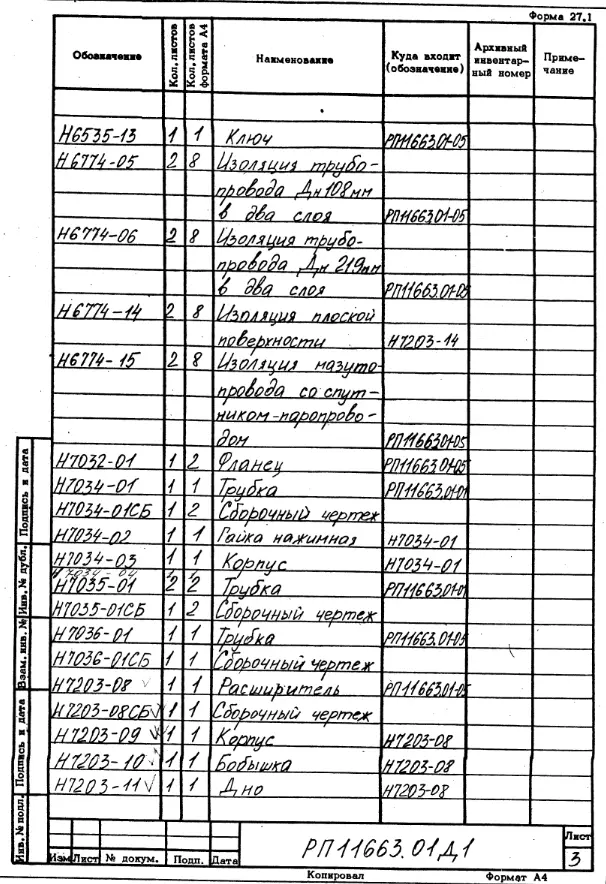 Форма 27.1
Обозначение Кол. листов Кол. листов формата А4 Наименование Куда входит (обозначение) Архивный инвентар-ный номер Приме-чание
Н6535-13 1 1 Ключ РП11663.01-05
Н6774-05 2 8 Изоляция трубо-
провода Дн108мм
в два слоя РП11663.01-05
Н6774-06 2 8 Изоляция трубо-
провода Дн 219мм
в два слоя РП11663.01-05
Н6774-14 2 8 Изоляция плоской
поверхности Н7203-14
Н6774-15 2 8 Изоляция мазуто-
провода со спут-
ником-паропрово-
дом РП11663.01-05
Н7032-01 1 2 Фланец РП11663.01-05
Н7034-01 1 1 Трубка РП11663.01-01
Н7034-01СБ 1 2 Сборочный чертеж
Н7034-02 1 1 Гайка нажимная Н7034-01
Н7034-03 1 1 Корпус Н7034-01
Н7035-01 2 2 Трубка РП11663.01-01
Н7035-01СБ 1 2 Сборочный чертеж
Н7036-01 1 1 Трубка РП11663.01-05
Н7036-01СБ 1 1 Сборочный чертеж
Н7203-08 1 1 Расширитель РП11663.01-05
Н7203-08СБ 1 1 Сборочный чертеж
Н7203-09 1 1 Корпус Н7203-08
Н7203-10 1 1 Бобышка Н7203-08
Н7203-11 1 1 Дно Н7203-08
Подпись и дата
Инв. № дубл.
Взам. инв. №
Подпись и дата
Инв. № подл.
РП11663.01Д1
Лист
3
Изм Лист № докум. Подп. Дата
Копировал Формат А4